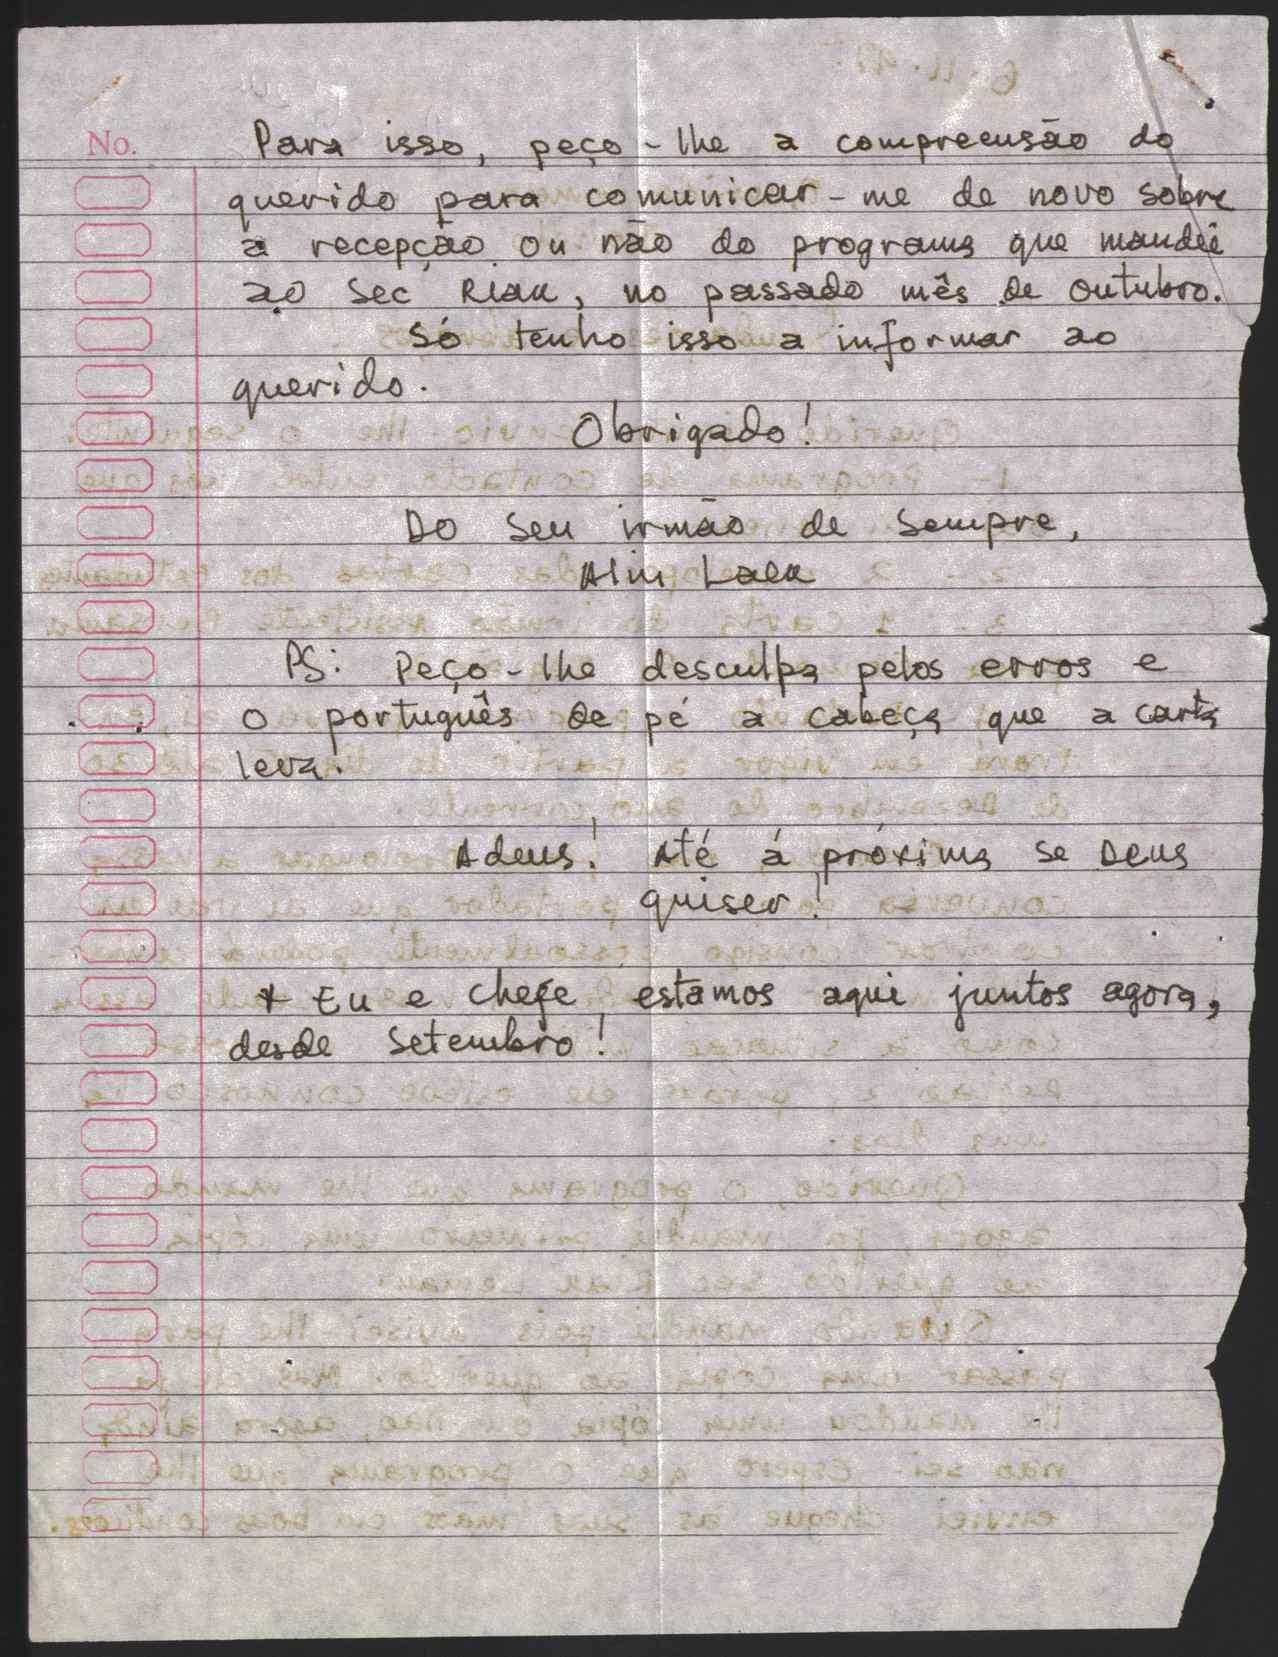 No.
Para isso, peço-lhe a compreensão do
querido para comunicar-me de novo sobre
a recepção ou não do programa que mandei
ao Sec Riak, no passado mês de outubro.
Só tenho isso a informar ao
querido.
Obrigado!
Do seu irmão de sempre,
Alin Laek
PS: Peço-lhe desculpa pelos erros e
o português de pé a cabeça que a carta
leva.
Adeus! Até á próxima se Deus
quiser!
* Eu e chefe, estamos aqui juntos agora,
desde Setembro!